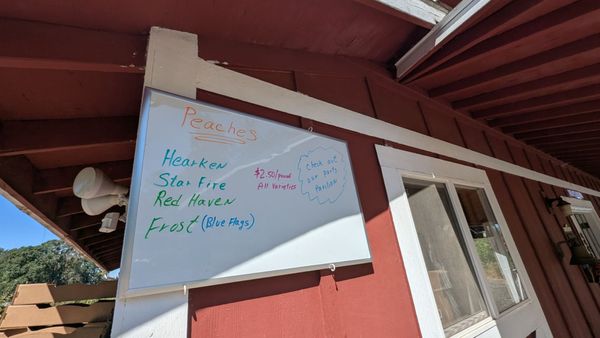 Peaches
Hearken
Star Fire
Red Haven
Frost (Blue Flags)
$2.50/pound
All Varieties
Check out
our party
Pavilion